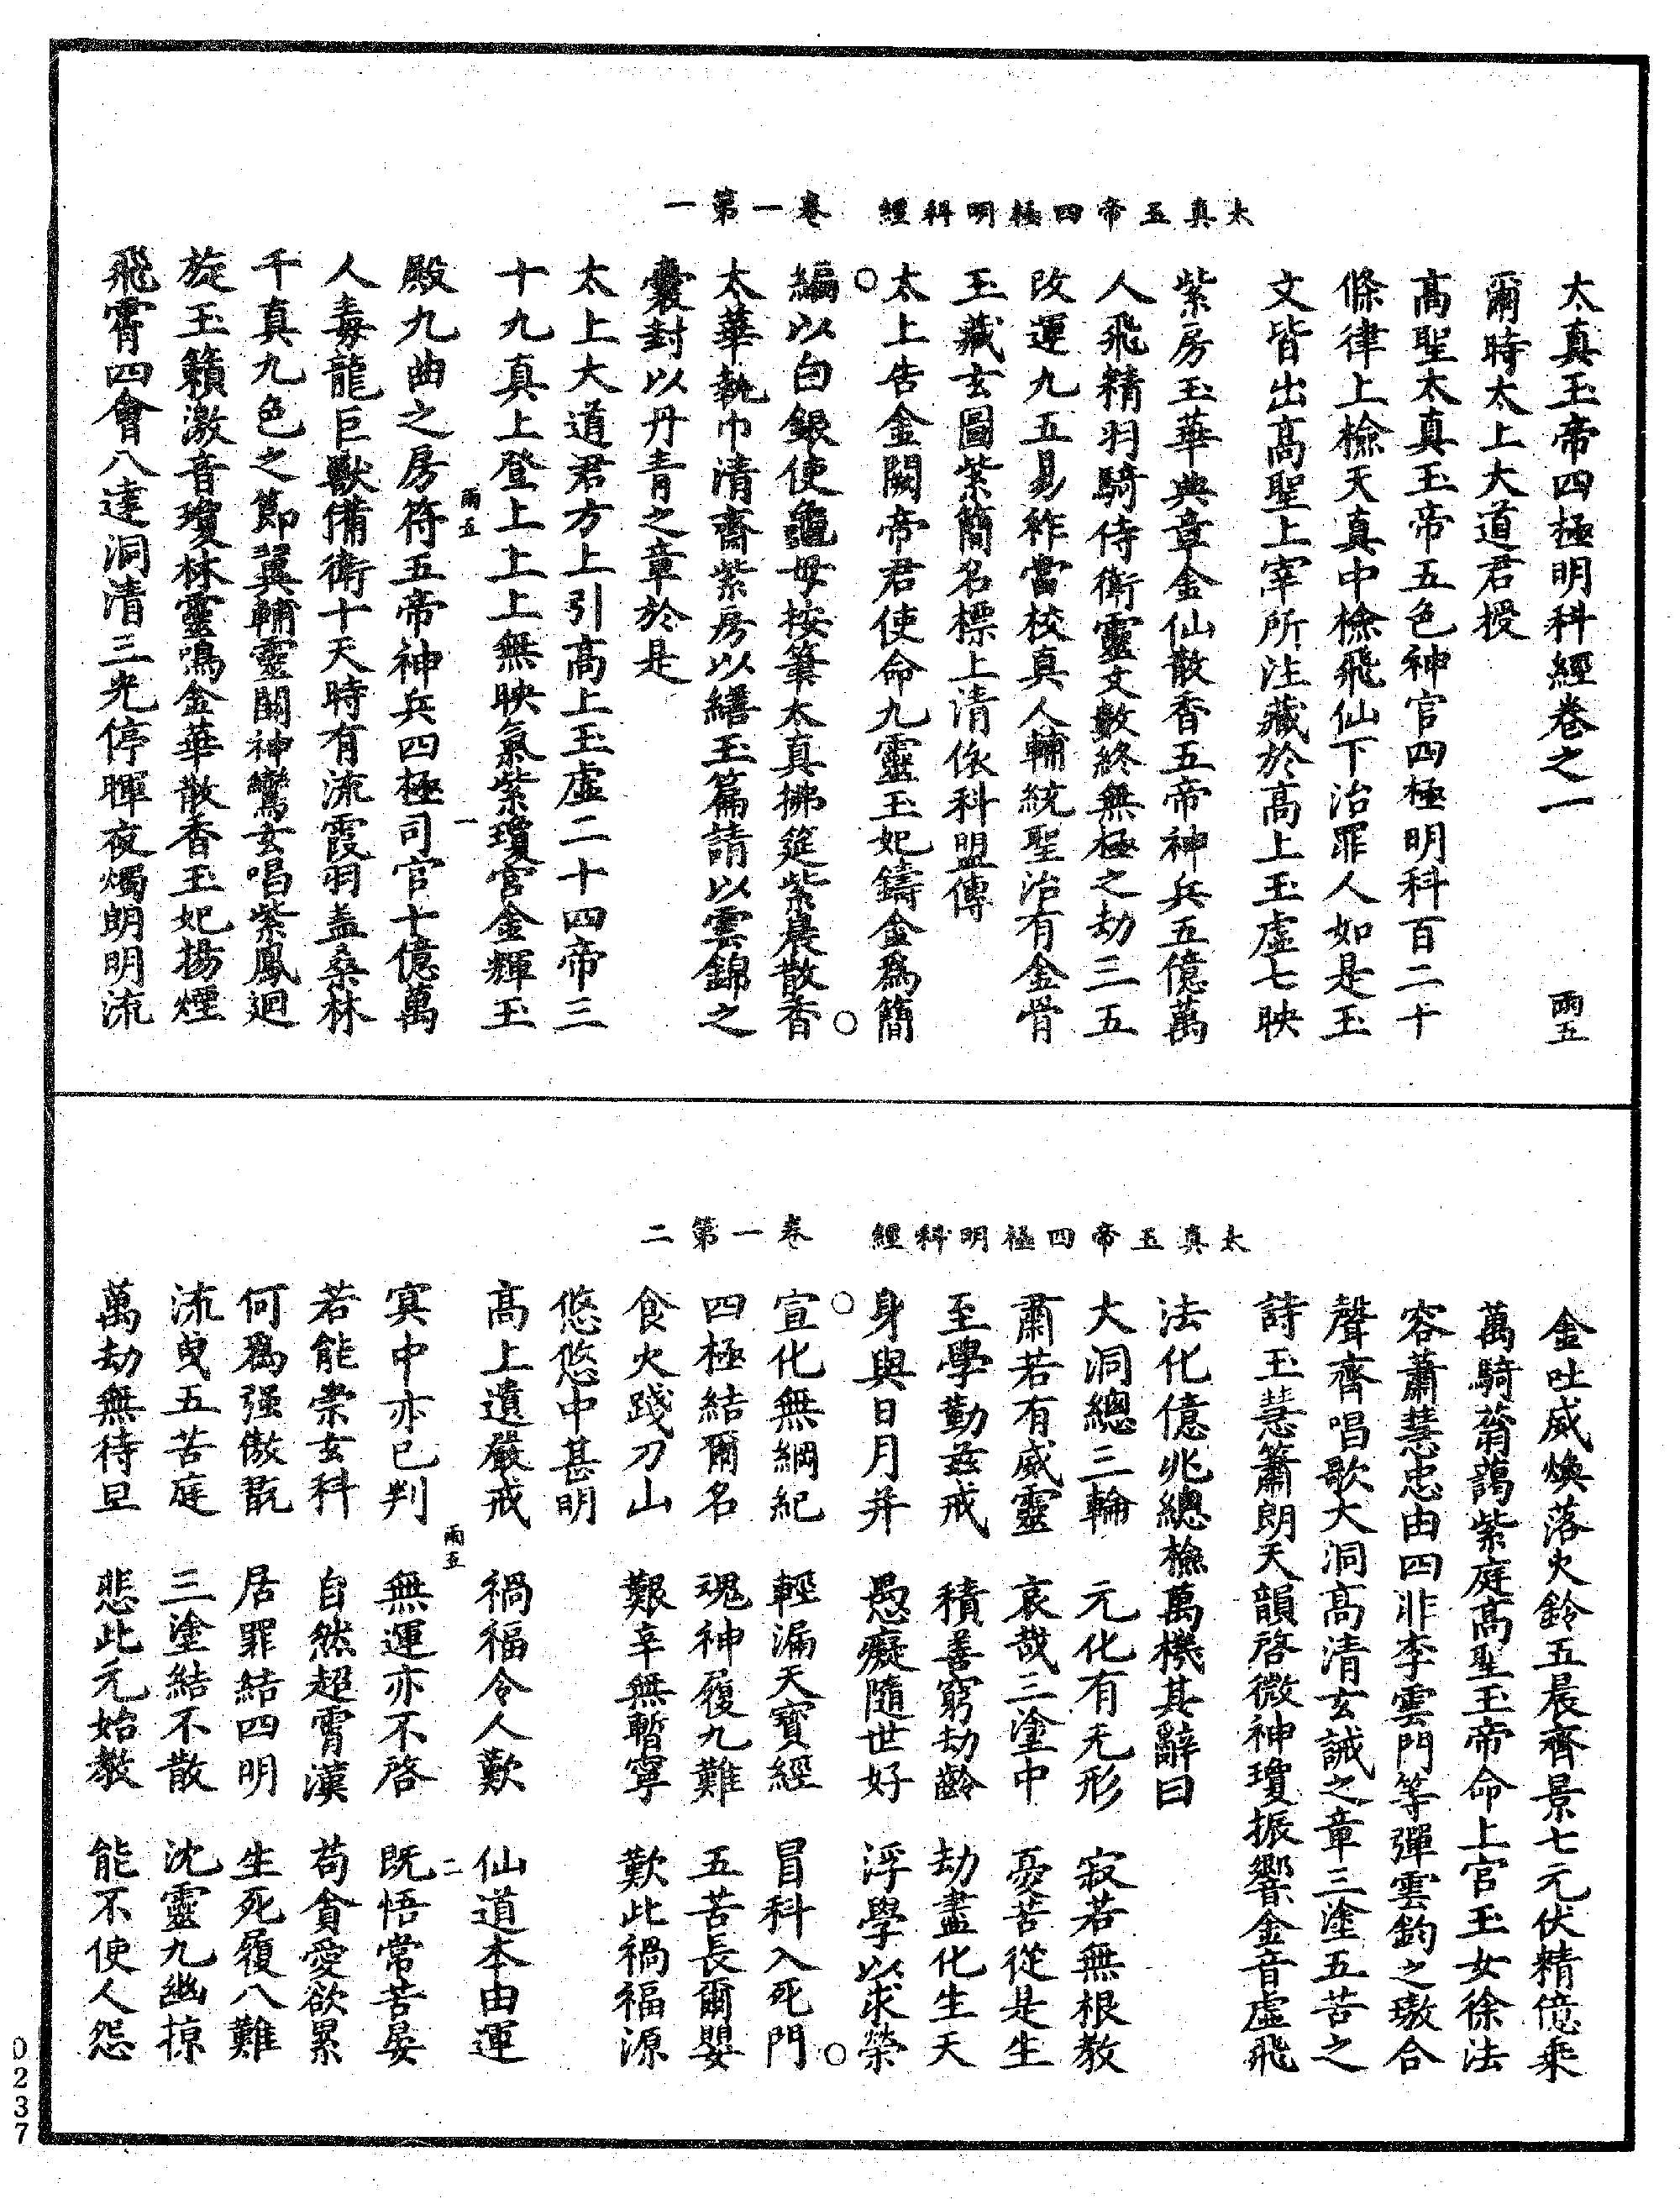 太真五帝四極明科經　卷一第一
太真玉帝四極明科經卷之一　雨五
爾時太上大道君授
高聖太真玉帝五色神官四極明科百二十
條律上檢天真中檢飛仙下治罪人如是玉
文皆出高聖上宰所注藏於高上玉虛七映
紫房玉華典章金仙散香五帝神兵五億萬
人飛精羽騎侍衛靈文數終無極之劫三五
改運九五易祚當校真人輔統聖治有金骨
玉藏玄圖紫簡名標上清依科盟傳
太上告金闕帝君使命九靈玉妃鑄金爲簡
編以白銀使龜母按筆太真拂筵紫晨散香
太華執巾清齋紫房以繕玉篇請以雲錦之
囊封以丹青之章於是
太上大道君方上引高上玉虛二十四帝三
十九真上登上上上無映氣紫瓊宮金輝玉
雨五　一
殿九曲之房符五帝神兵四極司官十億萬
人毒龍巨獸備衛十天時有流霞羽盖桑林
千真九色之節翼輔靈闕神鸞玄唱紫鳳迴
旋玉籟激音瓊林靈鳴金華散香玉妃揚煙
飛霄四會八達洞清三光停暉夜燭朗明流
太真五帝四極明科經　卷一第二
金吐威煥落火鈴五晨齊景七元伏精億乘
萬騎蓊藹紫庭高聖玉帝命上官玉女徐法
容蕭慧忠由四非李雲門等彈雲鈞之璈合
聲齊唱歌大洞高清玄誡之章三塗五苦之
詩玉慧簫朗天韻啓微神瓊振響金音虛飛
法化億兆總檢萬機其辭曰
大洞總三輪　元化有无形　寂若無根教
肅若有威靈　哀哉三塗中　憂苦從是生
至學勤兹戒　積善窮劫齡　劫盡化生天
身與日月并　愚癡隨世好　浮學以求榮
宣化無綱紀　輕漏天寶經　冒科入死門
四極結爾名　魂神履九難　五苦長爾嬰
食火踐刀山　艱辛無暫寧　歎此禍福源
悠悠中甚明
高上遺嚴戒　禍福令人歎　仙道本由運
雨五　二
冥中亦已判　無運亦不啓　既悟常苦晏
若能崇玄科　自然超霄漢　苟貪愛欲累
何爲强傲翫　居罪結四明　生死履八難
流曳五苦庭　三塗結不散　沈靈九幽掠
萬劫無待旦　悲此元始教　能不使人怨
0237